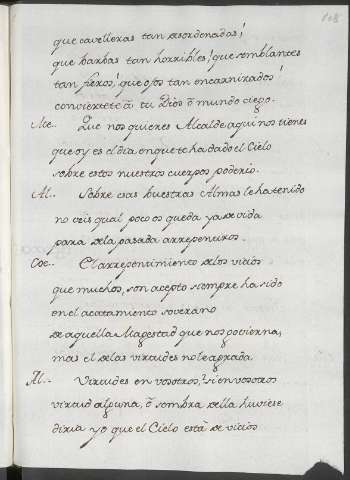 108
que cavelleras tan desordenadas!
que barbas tan horribles! que semblantes
tan fieros! que ojos tan encarnizados!
conviertete â tu Dios ô mundo ciego.
Ate.. Que nos quieres Alcalde aqui nos tienes
que oy es el dia en que te ha dado el Cielo
sobre estos nuestros cuerpos poderio.
Al.. Sobre esas buestras Almas le ha tenido
no veis qual poco os queda ya de vida
para de la pasada arrepentiros.
Coe.. El arrepentimiento de los vicios
que muchos, son acepto siempre ha sido
en el acatamiento soverano
de aquella Magestad que nos govierna,
mas el de las virtudes no le agrada.
Al.. Virtudes en vosotros? si en vosotros
virtud alguna, ô sombra della huviese
diria yo que el Cielo està de vicios